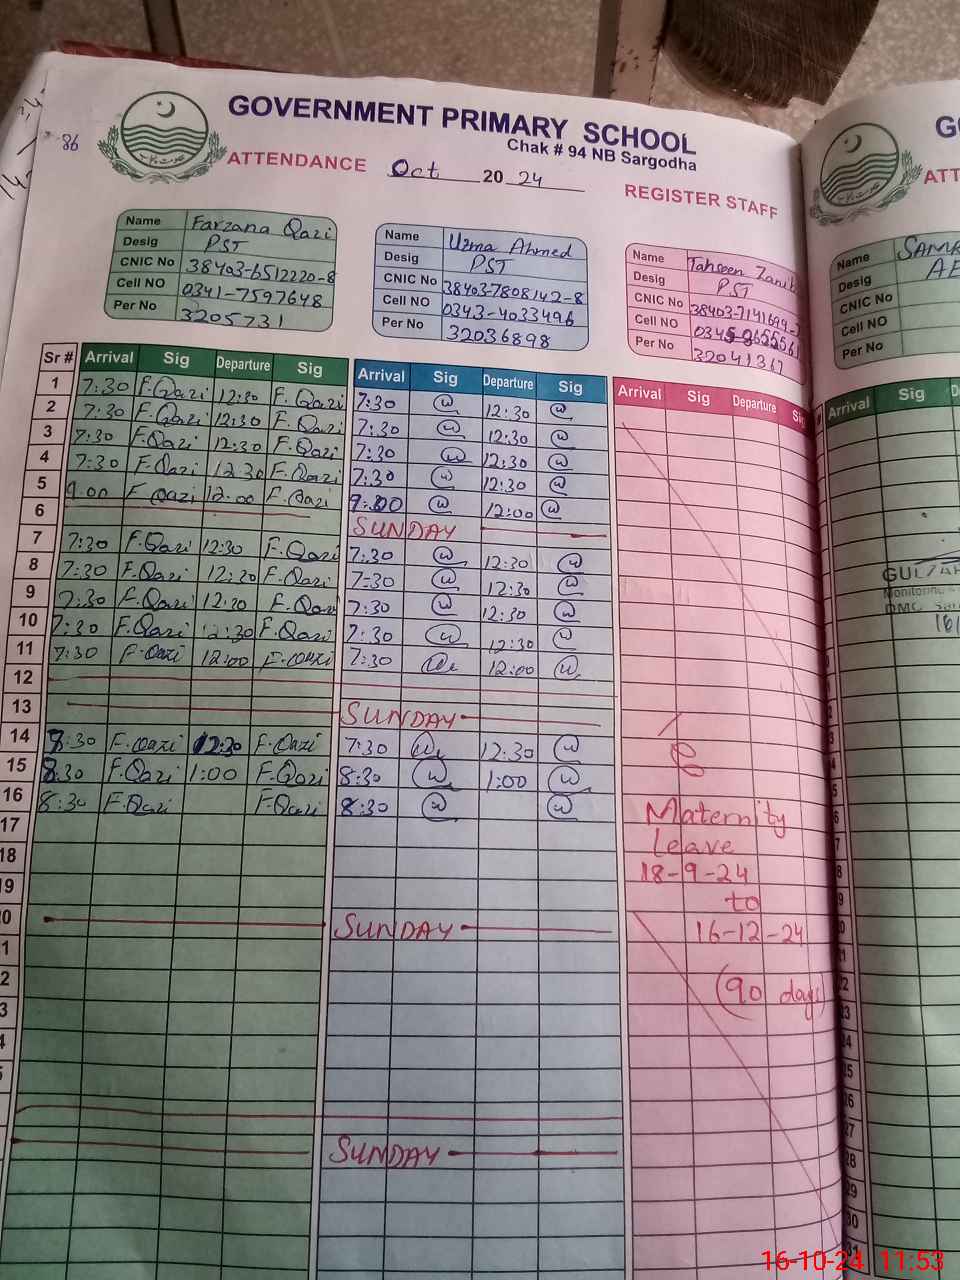 86
GOVERNMENT PRIMARY SCHOOL
Chak # 94 NB Sargodha
ATTENDANCE Oct 2024
REGISTER STAFF
Name Farzana Qazi
Desig PST
CNIC No 38403-6512220-8
Cell NO 0341-7597648
Per No 3205731
Name Uzma Ahmed
Desig PST
CNIC No 38403-7808142-8
Cell NO 0343-4033496
Per No 32036898
Name Tahseen
Desig PST
CNIC No 38403-7141699-
Cell NO
Per No 32041367
Name
Desig
CNIC No
Cell NO
Per No
Sr # Arrival Sig Departure Sig Arrival Sig Departure Sig Arrival Sig Departure Sig Arrival Sig
1 7:30 F.Qazi 12:30 F.Qazi 7:30 12:30
2 7:30 F.Qazi 12:30 F.Qazi 7:30 12:30
3 7:30 F.Qazi 12:30 F.Qazi 7:30 12:30
4 7:30 F.Qazi 12:30 F.Qazi 7:30 12:30
5 9:00 F Qazi 12:00 F.Qazi 9:00 12:00
6 SUNDAY
7 7:30 F.Qazi 12:30 F.Qazi 7:30 12:30
8 7:30 F.Qazi 12:30 F.Qazi 7:30 12:30
9 7:30 F.Qazi 12:30 F.Qazi 7:30 12:30
10 7:30 F.Qazi 12:30 F.Qazi 7:30 12:30
11 7:30 F.Qazi 12:00 F.Qazi 7:30 12:00
12
13 SUNDAY
14 8:30 F.Qazi 12:30 F.Qazi 7:30 12:30
15 8:30 F.Qazi 1:00 F.Qazi 8:30 1:00
16 8:30 F.Qazi F.Qazi 8:30
17
18
19
SUNDAY
SUNDAY
Maternity
Leave
18-9-24
to
16-12-24
(90 days)
23
24
25
26
27
28
29
30
31
16-10-24 11:53